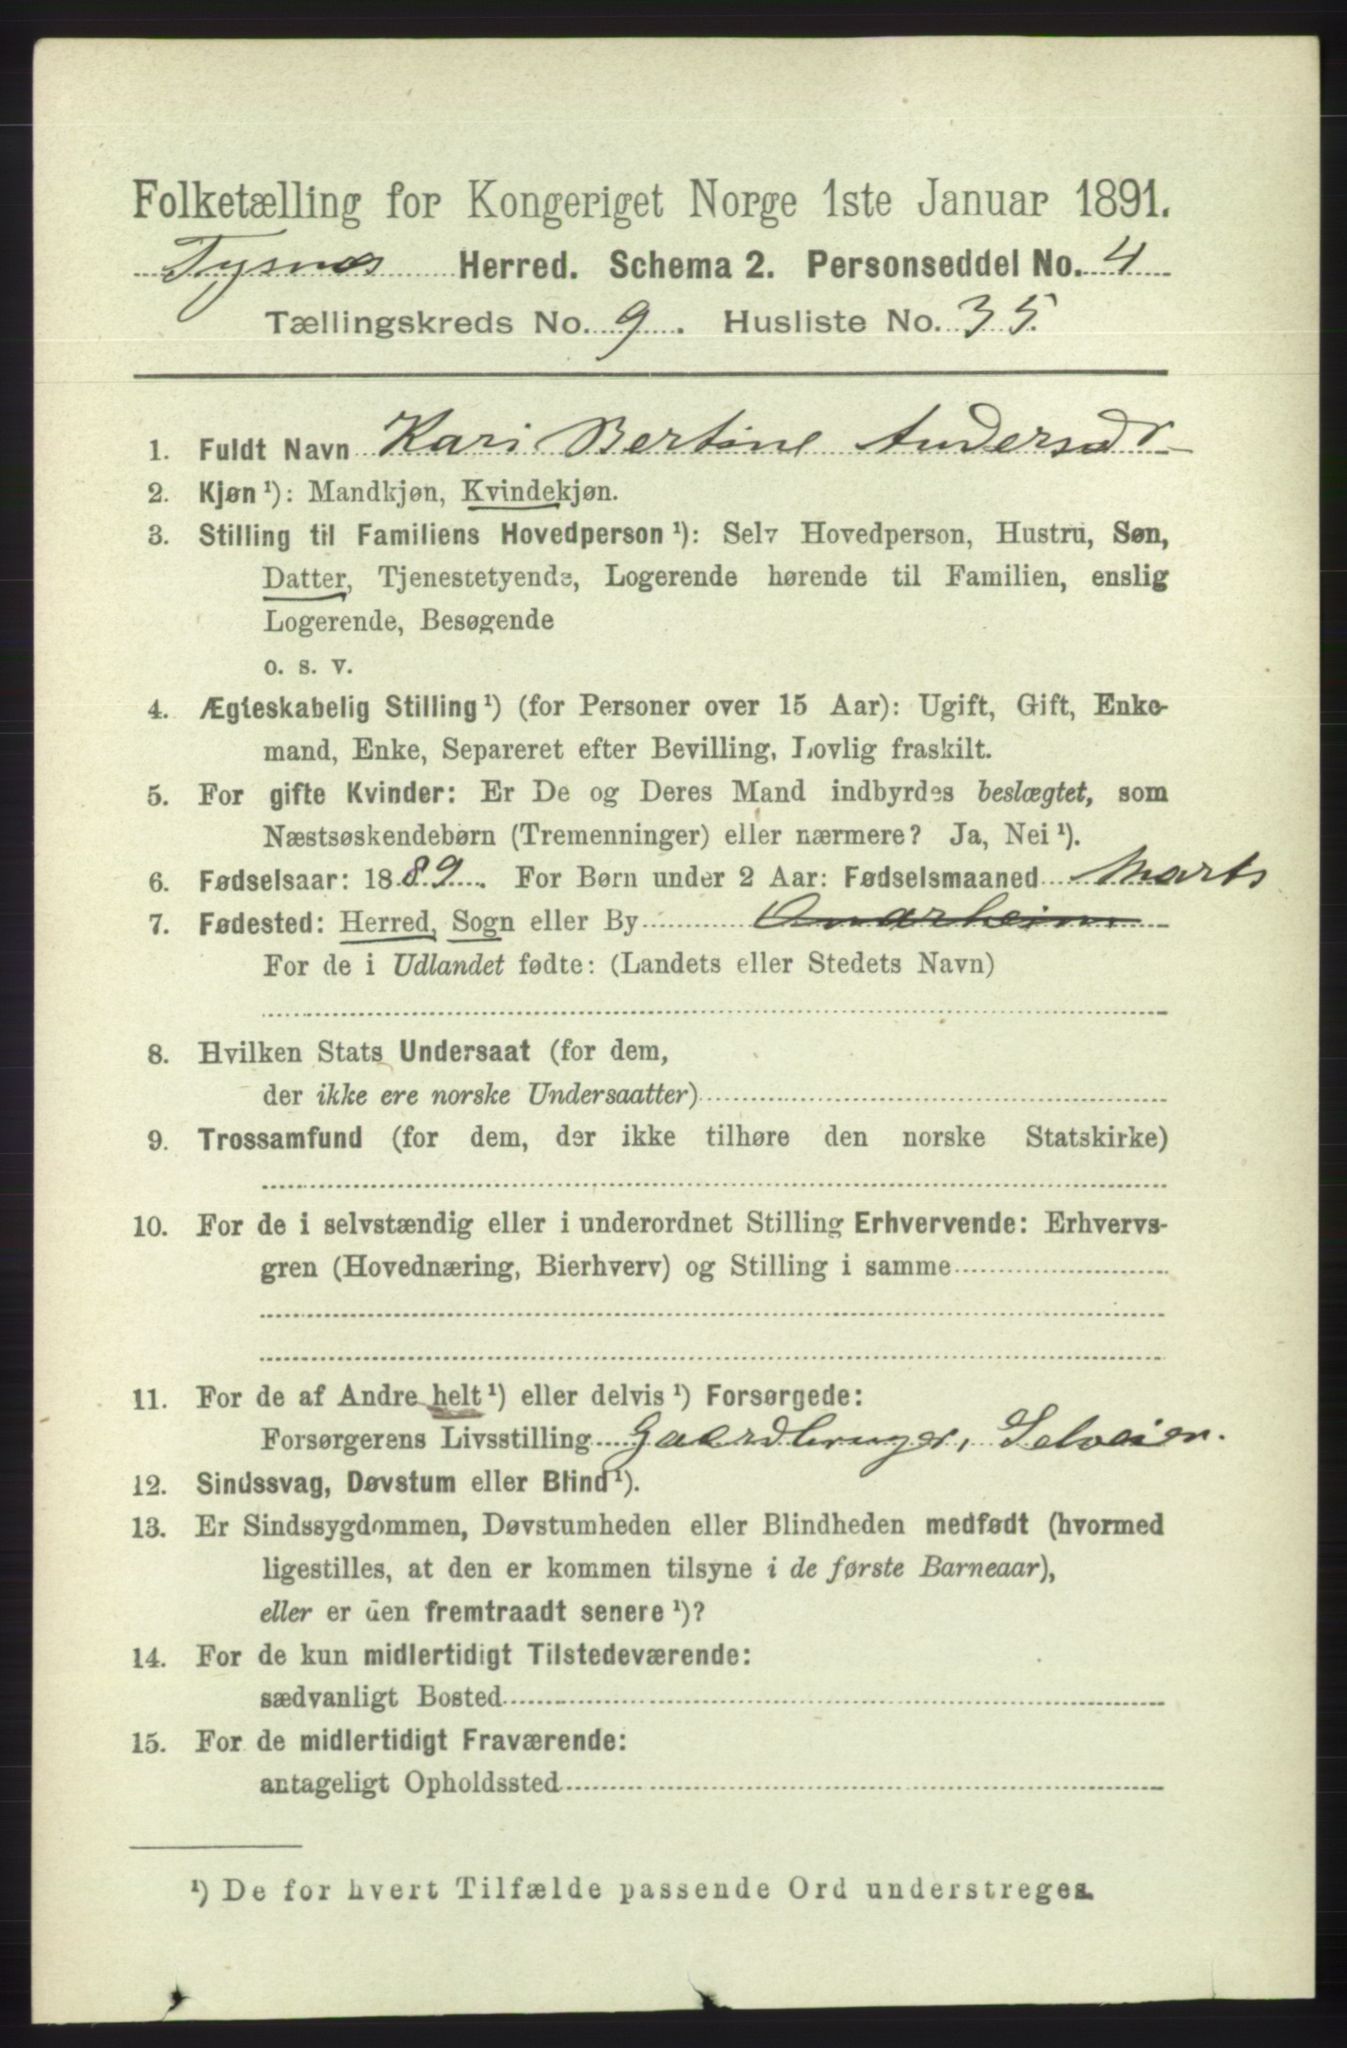 Folketælling for Kongeriget Norge 1ste Januar 1891.
Tysnæs Herred. Schema 2. Personseddel No. 4
Tællingskreds No. 9. Husliste No. 35.
1. Fuldt Navn Kari Bertine Andersdr
2. Kjøn ¹): Mandkjøn, Kvindekjøn.
3. Stilling til Familiens Hovedperson ¹): Selv Hovedperson, Hustru, Søn,
Datter, Tjenestetyende, Logerende hørende til Familien, enslig
Logerende, Besøgende
o. s. v.
4. Ægteskabelig Stilling ¹) (for Personer over 15 Aar): Ugift, Gift, Enke-
mand, Enke, Separeret efter Bevilling, Lovlig fraskilt.
5. For gifte Kvinder: Er De og Deres Mand indbyrdes beslægtet, som
Næstsøskendebørn (Tremenninger) eller nærmere? Ja, Nei ¹).
6. Fødselsaar: 1889. For Børn under 2 Aar: Fødselsmaaned Marts
7. Fødested: Herred, Sogn eller By Onarheim
For de i Udlandet fødte: (Landets eller Stedets Navn)
8. Hvilken Stats Undersaat (for dem,
der ikke ere norske Undersaatter)
9. Trossamfund (for dem, der ikke tilhøre den norske Statskirke)
10. For de i selvstændig eller i underordnet Stilling Erhvervende: Erhvervs-
gren (Hovednæring, Bierhverv) og Stilling i samme
11. For de af Andre helt ¹) eller delvis ¹) Forsørgede:
Forsørgerens Livsstilling Gaardbruger, Selveier.
12. Sindssvag, Døvstum eller Blind ¹).
13. Er Sindssygdommen, Døvstumheden eller Blindheden medfødt (hvormed
ligestilles, at den er kommen tilsyne i de første Barneaar),
eller er den fremtraadt senere ¹)?
14. For de kun midlertidigt Tilstedeværende:
sædvanligt Bosted
15. For de midlertidigt Fraværende:
antageligt Opholdssted
¹) De for hvert Tilfælde passende Ord understreges.